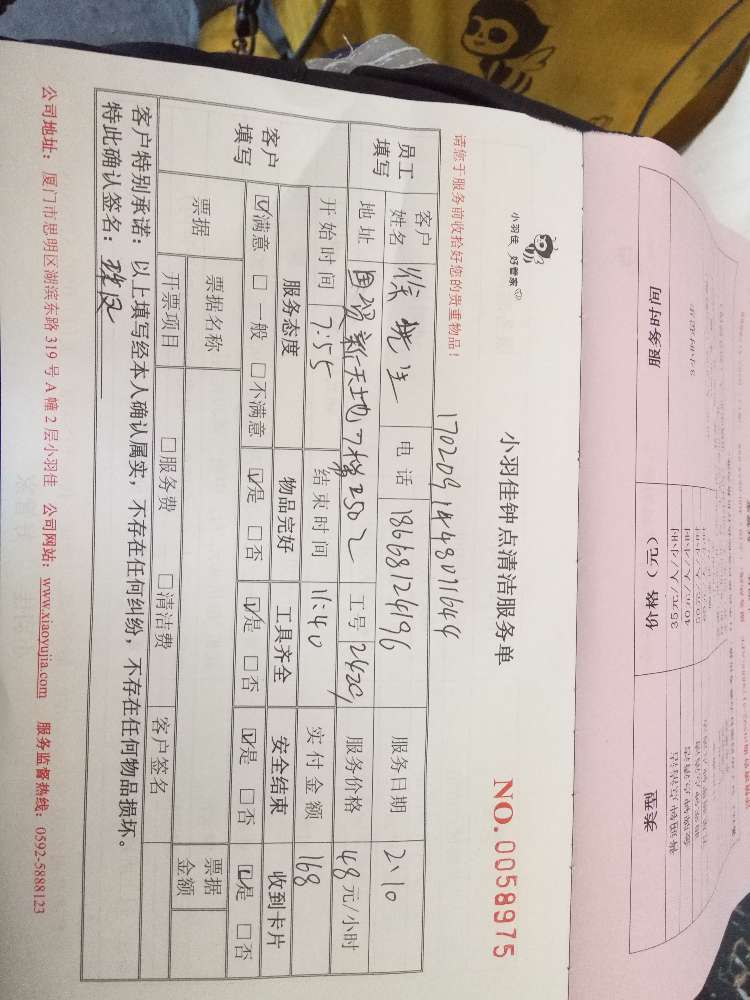 小羽佳 好管家
小羽佳钟点清洁服务单
NO.0058975
170209144807164 4
请您于服务前收拾好您的贵重物品！
员工填写 客户姓名 徐先生 电话 18668124196 服务日期 2、10
地址 国贸新天地 2502 工号 2429 服务价格 48元/小时
开始时间 7:55 结束时间 11:40 实付金额 168
客户填写 服务态度 物品完好 工具齐全 安全结束 收到卡片
☑满意 □一般 □不满意 ☑是 □否 ☑是 □否 ☑是 □否 ☑是 □否
票据 票据名称 客户签名 票据金额
开票项目 □服务费 □清洁费
客户特别承诺：以上填写经本人确认属实，不存在任何纠纷，不存在任何物品损坏。
特此确认签名：
公司地址：厦门市思明区湖滨东路319号A幢2层小羽佳 公司网站：www.xiaoyujia.com 服务监督热线：0592-5888123
服务时间 价格（元） 类型
35元/人/小时